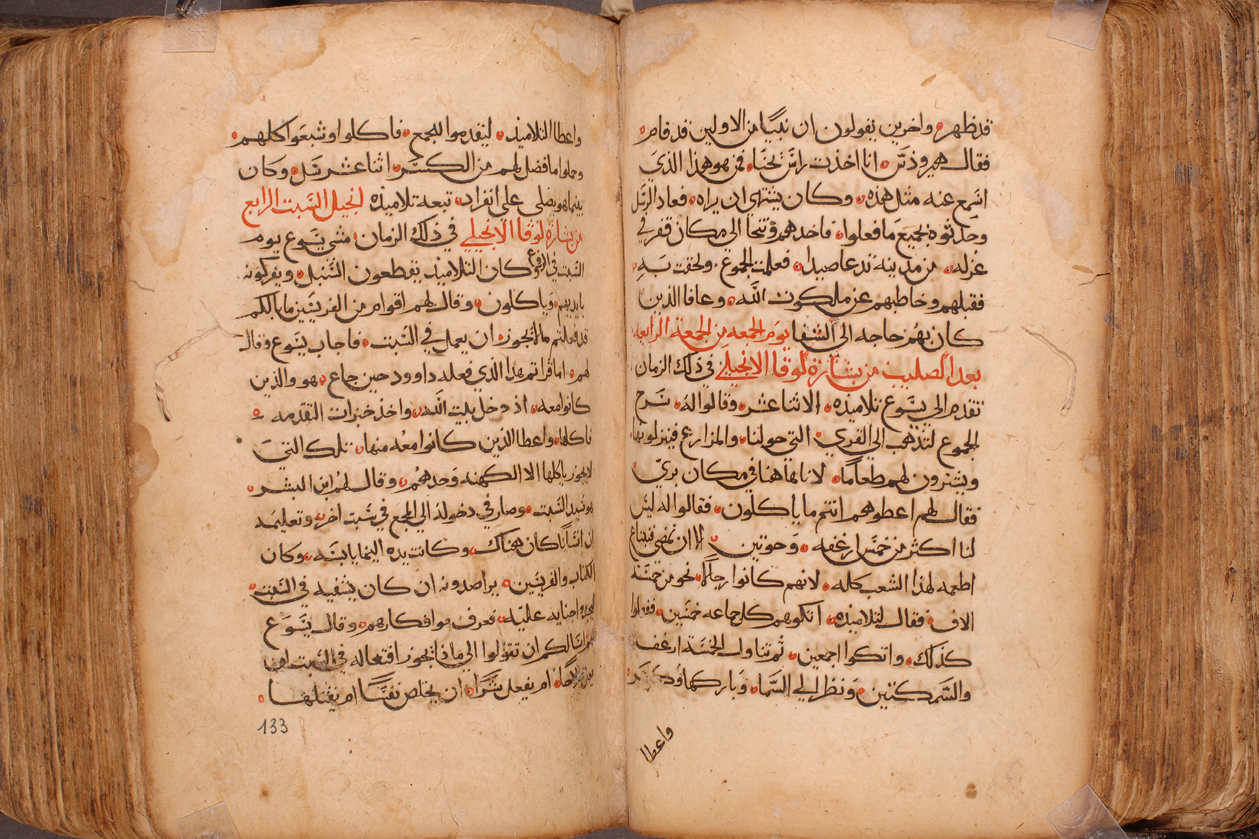 قد ظهر واخرين يقولون ان نبيا من الاولين قد قام
فقال هيرودس انا اخذت راس يحنا فمن هو هذا الذي
اسمع عنه مثل هذه وكان يشتهي ان يراه فعاد الرسل
وحدثوه بجميع ما فعلوا فاخدهم وتنحا الى مكان قفر في
عزله من مدينه تدعا صيدا فعلمت الجموع ولحقت به
فقبلهم وخاطبهم عن ملكوت الله وعافا الذين
كان بهم حاجه الى الشفا يوم الجمعه من الجمعة الرابعه
بعد الصليب من بشارة لوقا الانجيلي في ذلك الزمان
تقدم الى يسوع تلاميذه الاثنا عشر وقالوا له سرح
الجموع لتذهب الى القرى التي حولنا والمزارع فينزلوا بها
ويشترون لهم طعاما لاننا هاهنا في مكان بري
فقال لهم اعطوهم انتم ما ياكلون فقالوا له ليس
لنا اكثر من خمس ارغفه وحوتين الا ان نمضي فنبتاع
اطعمه لهذا الشعب كله لانهم كانوا رجالا نحو من خمسة
الاف فقال لتلاميذه اتكوهم كل جماعه خمسين ففعلوا
كذلك واتكوا اجمعين ثم تناول الخمسة ارغفه
والسمكتين ونظر الى السما وباركها وكسر
واعطا
واعطا التلاميذ ليقدموا للجمع فاكلوا وشبعوا كلهم
وحملوا ما فضل لهم من الكسر اثنا عشر سل وكان
بينما هو يصلي على انفراد تبعه تلاميذه انجيل السبت الرابع
من بشارة لوقا الانجيلي في ذلك الزمان مشى يسوع يوم
السبت في الزرع كان التلاميذ يقطعون السنبل ويفركونه
بايديهم وياكلون وقال لهم اقوام من الفريسيين ما بالكم
قد فعلتم ما لا يجوز ان يعمل في السبت فاجاب يسوع وقال
لهم اما قراتم هذا الذي فعله داوود حين جاع هو والذين
كانوا معه اذ دخل بيت الله واخذ خبزات التقدمه
فاكلها واعطا الذين كانوا معه منها تلك التي
لا يجوز ياكلها الا الكهنه وحدهم وقال لهم ابن البشر
هو سيد السبت وصار في دخوله الى المجمع في سبت اخر وتعليمه
ان انسانا كان هناك وكانت يده اليمنا يابسه وكان
الكتاب والفريسيين يراصدونه ان كان يشفيه في السبت
عليه فعرف هو افكارهم وقال يسوع
اسالكم ان تقولوا الي ماذا يجوز افتعاله في السبت
ام يفعل شرا ان يخلص نفسا ام يقتلها
133